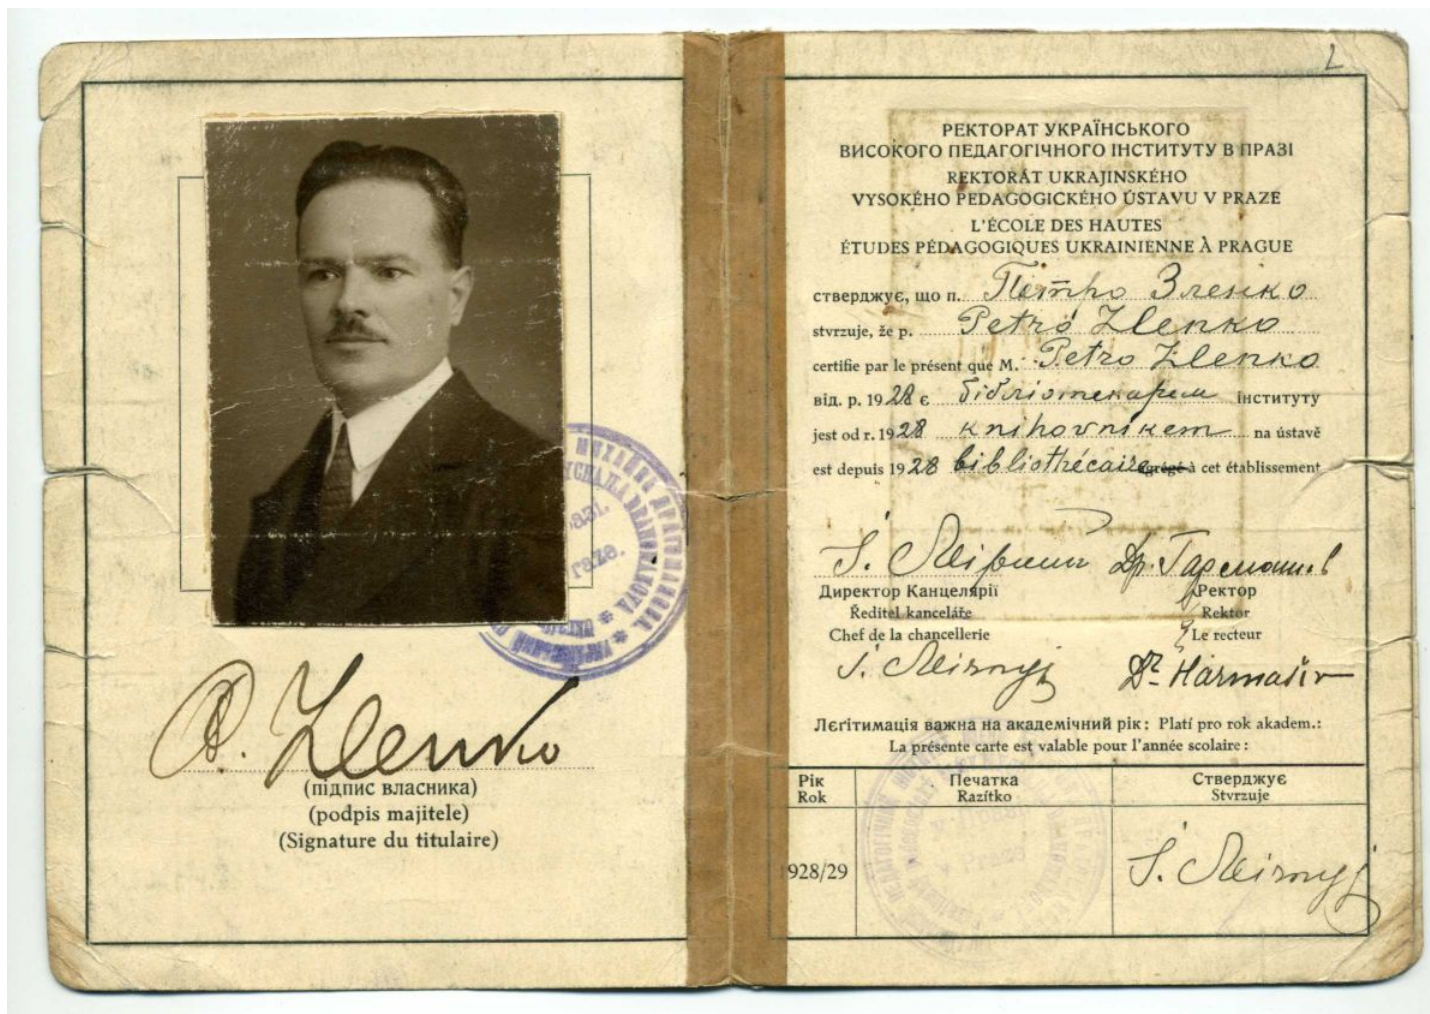 P. Zlenko
(підпис власника)
(podpis majitele)
(Signature du titulaire)
РЕКТОРАТ УКРАЇНСЬКОГО
ВИСОКОГО ПЕДАГОГІЧНОГО ІНСТИТУТУ В ПРАЗІ
REKTORÁT UKRAJINSKÉHO
VYSOKÉHO PEDAGOGICKÉHO ÚSTAVU V PRAZE
L'ÉCOLE DES HAUTES
ÉTUDES PÉDAGOGIQUES UKRAINIENNE À PRAGUE
стверджує, що п. Петро Зленко
stvrzuje, že p. Petro Zlenko
certifie par le présent que M. Petro Zlenko
від. р. 1928 є бібліотекарем інституту
jest od r. 1928 knihovníkem na ústavě
est depuis 1928 bibliothécaire agrégé à cet établissement
Др.
Директор Канцелярії Ректор
Ředitel kanceláře Rektor
Chef de la chancellerie Le recteur
S. Mirnyj Dr Harmašiv
Лєґітимація важна на академічний рік: Platí pro rok akadem.:
La présente carte est valable pour l'année scolaire:
Рік Печатка Стверджує
Rok Razítko Stvrzuje
928/29 S. Mirnyj